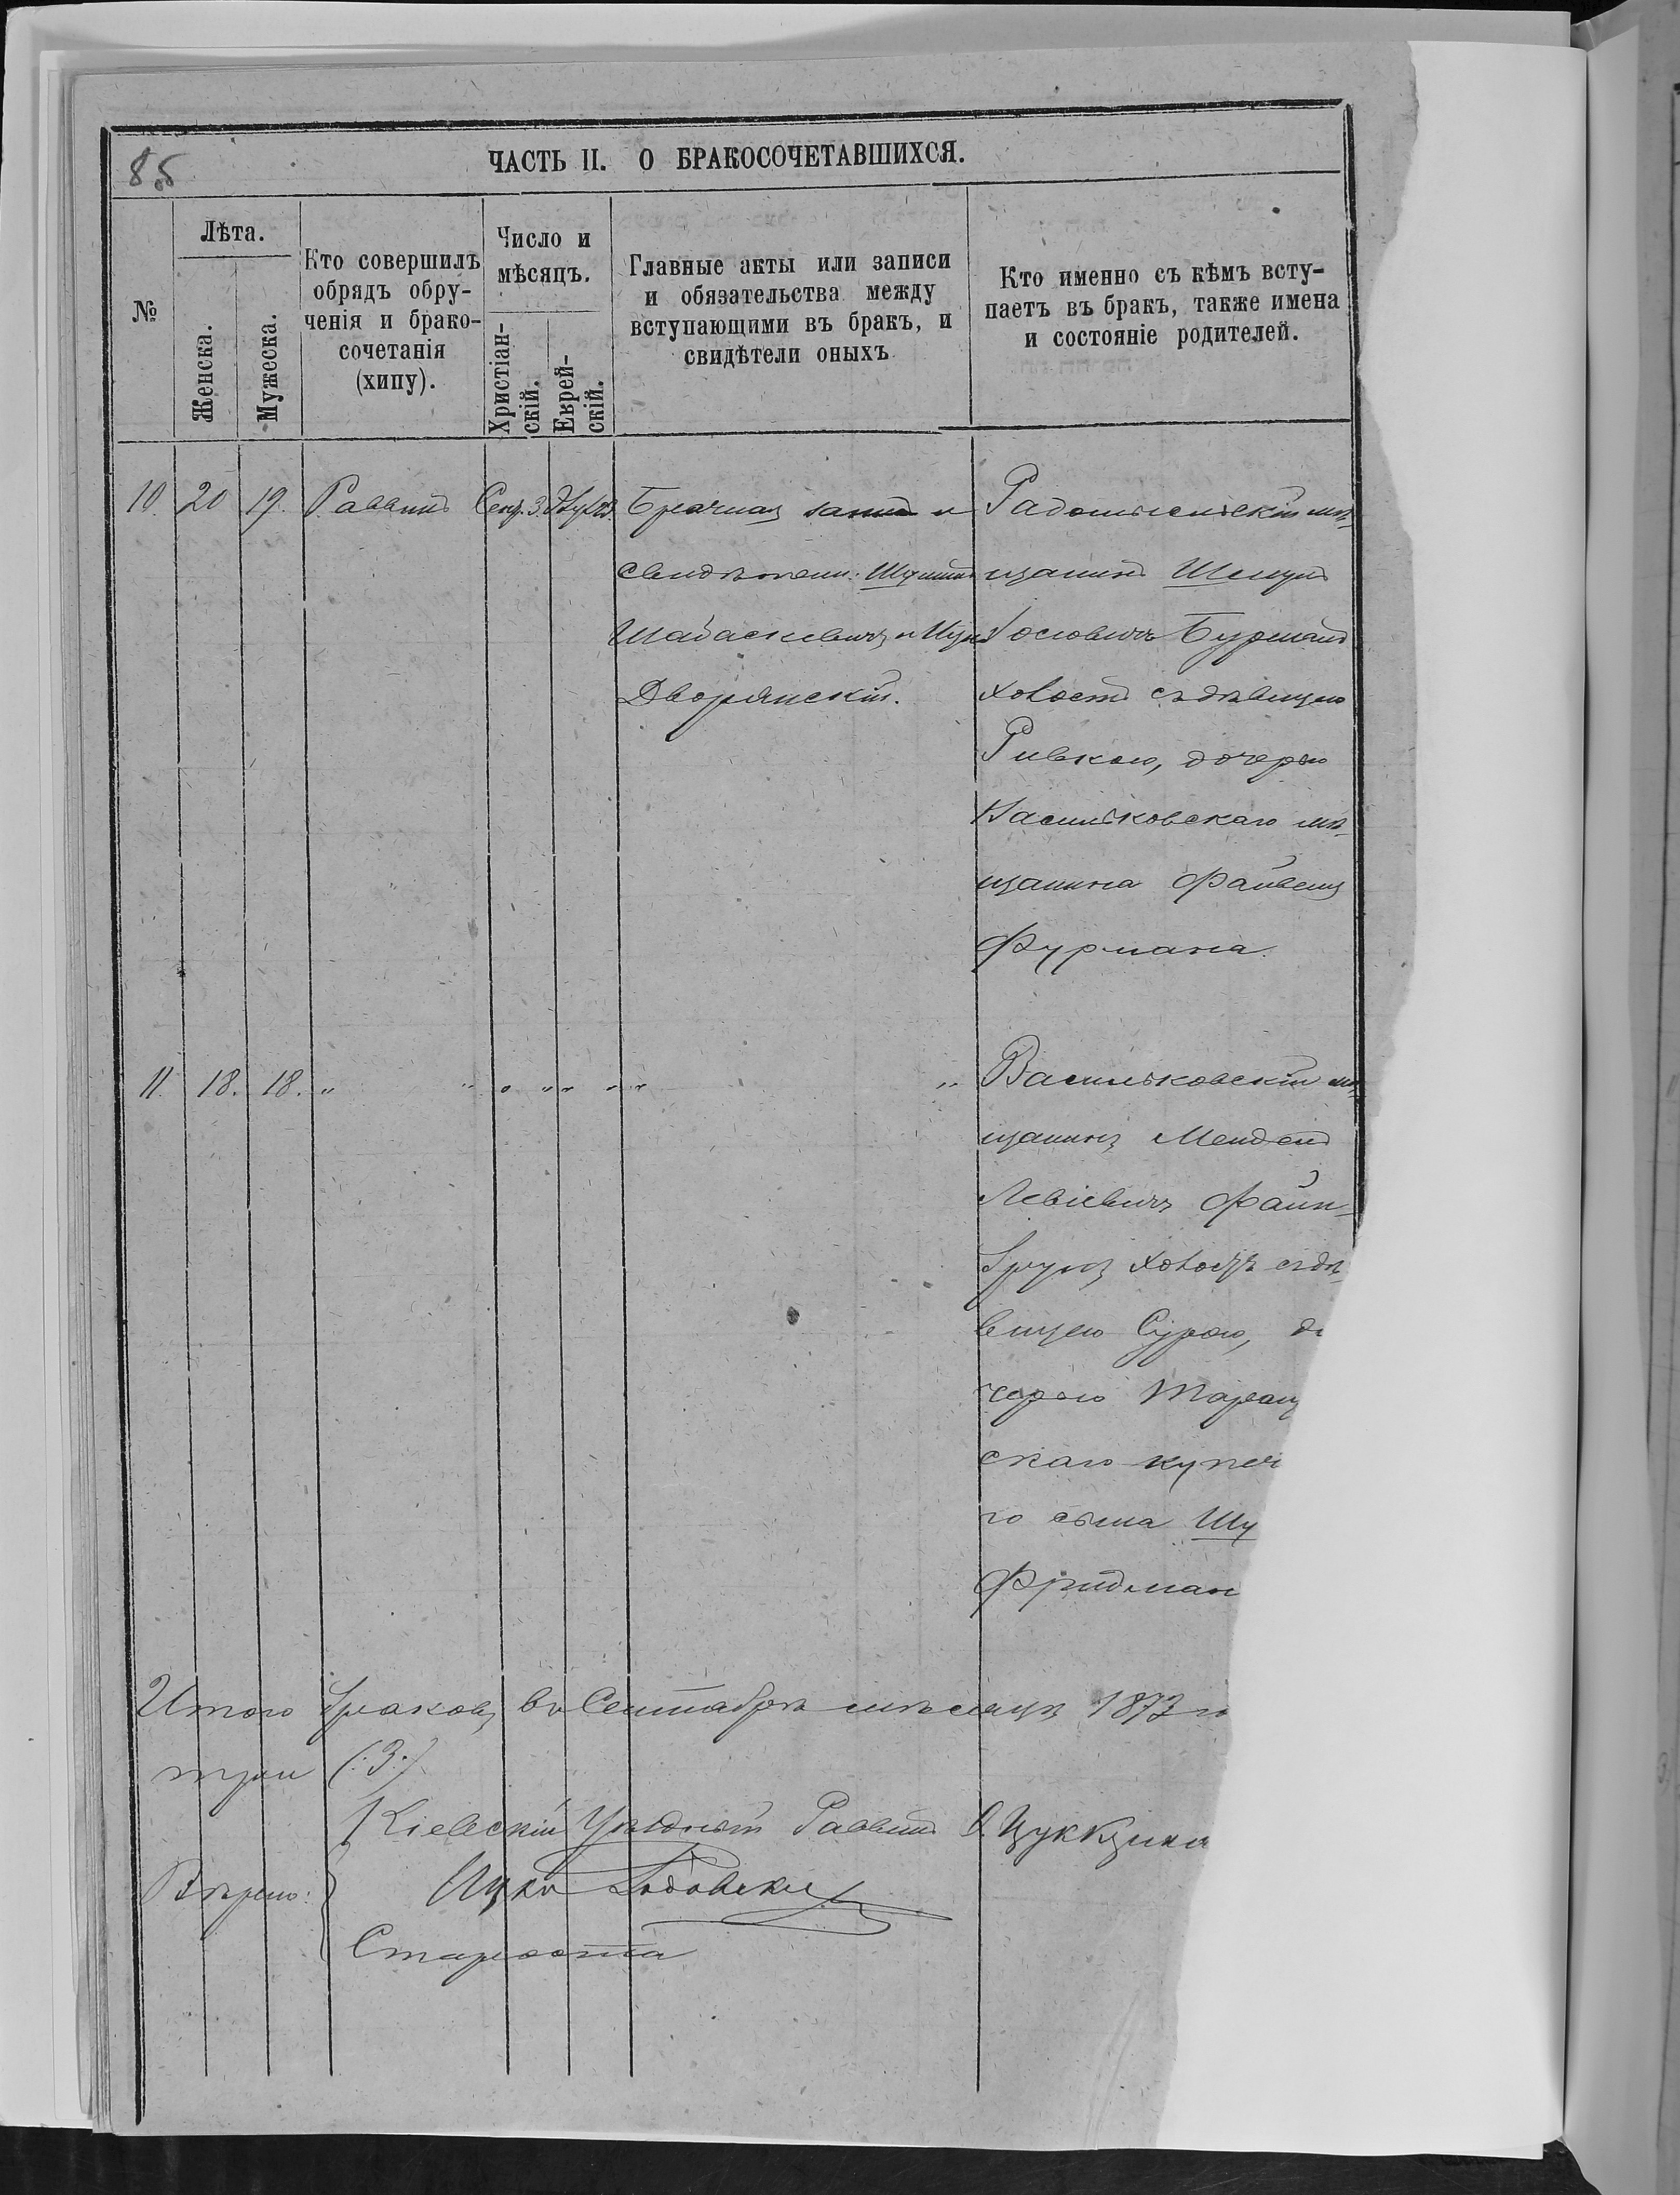 8об
ЧАСТЬ II. О БРАКОСОЧЕТАВШИХСЯ.
№
Лѣта.
Женска.
Мужеска.
Кто совершилъ
обрядъ обру-
ченія и брако-
сочетанія
(хипу).
Число и
мѣсяцъ.
Христіан-
скій.
Еврей-
скій.
Главные акты или записи
и обязательства между
вступающими въ бракъ, и
свидѣтели оныхъ
Кто именно съ кѣмъ всту-
паетъ въ бракъ, также имена
и состояніе родителей.
10. 20 19. Раввинъ Сент. 3. Брачная запись и
свидѣтели: Шулимъ
Шабаскевичъ и Ицко
Дворянскій.
Радомысльскій мѣ-
щанинъ Шмулъ
Іосіовичъ Бурманъ
холостъ съ дѣвицею
Ривкою, дочерью
Васильковскаго мѣ-
щанина Файвеля
Фурмана.
11. 18. 18. " " " " " " " "
Васильковскій мѣ-
щанинъ Мендель
Левіевичъ Файн-
бругъ холостъ съ дѣ-
вицею Сурою, до
черью Таращ
скаго купеч
го сына Шу
Фридман
Итого браковъ въ Сентябрѣ мѣсяцѣ 1873 го
три (:3:)
Кіевскій Уѣздный Раввинъ Цуккерма
Вѣрно:
Ицко
Староста